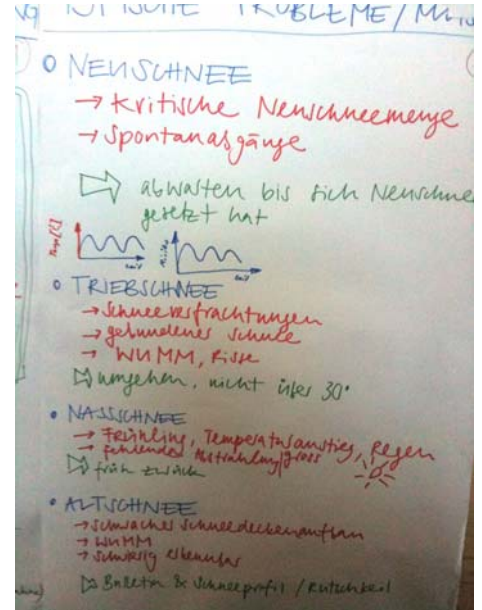 ISTISCHE PROBLEME / MUS
○ NEUSCHNEE
→ Kritische Neuschneemenge
→ Spontanabgänge
⇨ abwarten bis sich Neuschnee
gesetzt hat
• TRIEBSCHNEE
→ Schneeverfrachtungen
→ gebundener Schnee
→ WUMM, Risse
⇨ umgehen, nicht über 30°
• NASSSCHNEE
→ Frühling, Temperaturanstieg, Regen
→ fehlende Ausstrahlung/gross
⇨ früh zurück
• ALTSCHNEE
→ schwacher Schneedeckenaufbau
→ WUMM
→ schwierig erkennbar
⇨ Bulletin & Schneeprofil / Rutschkeil